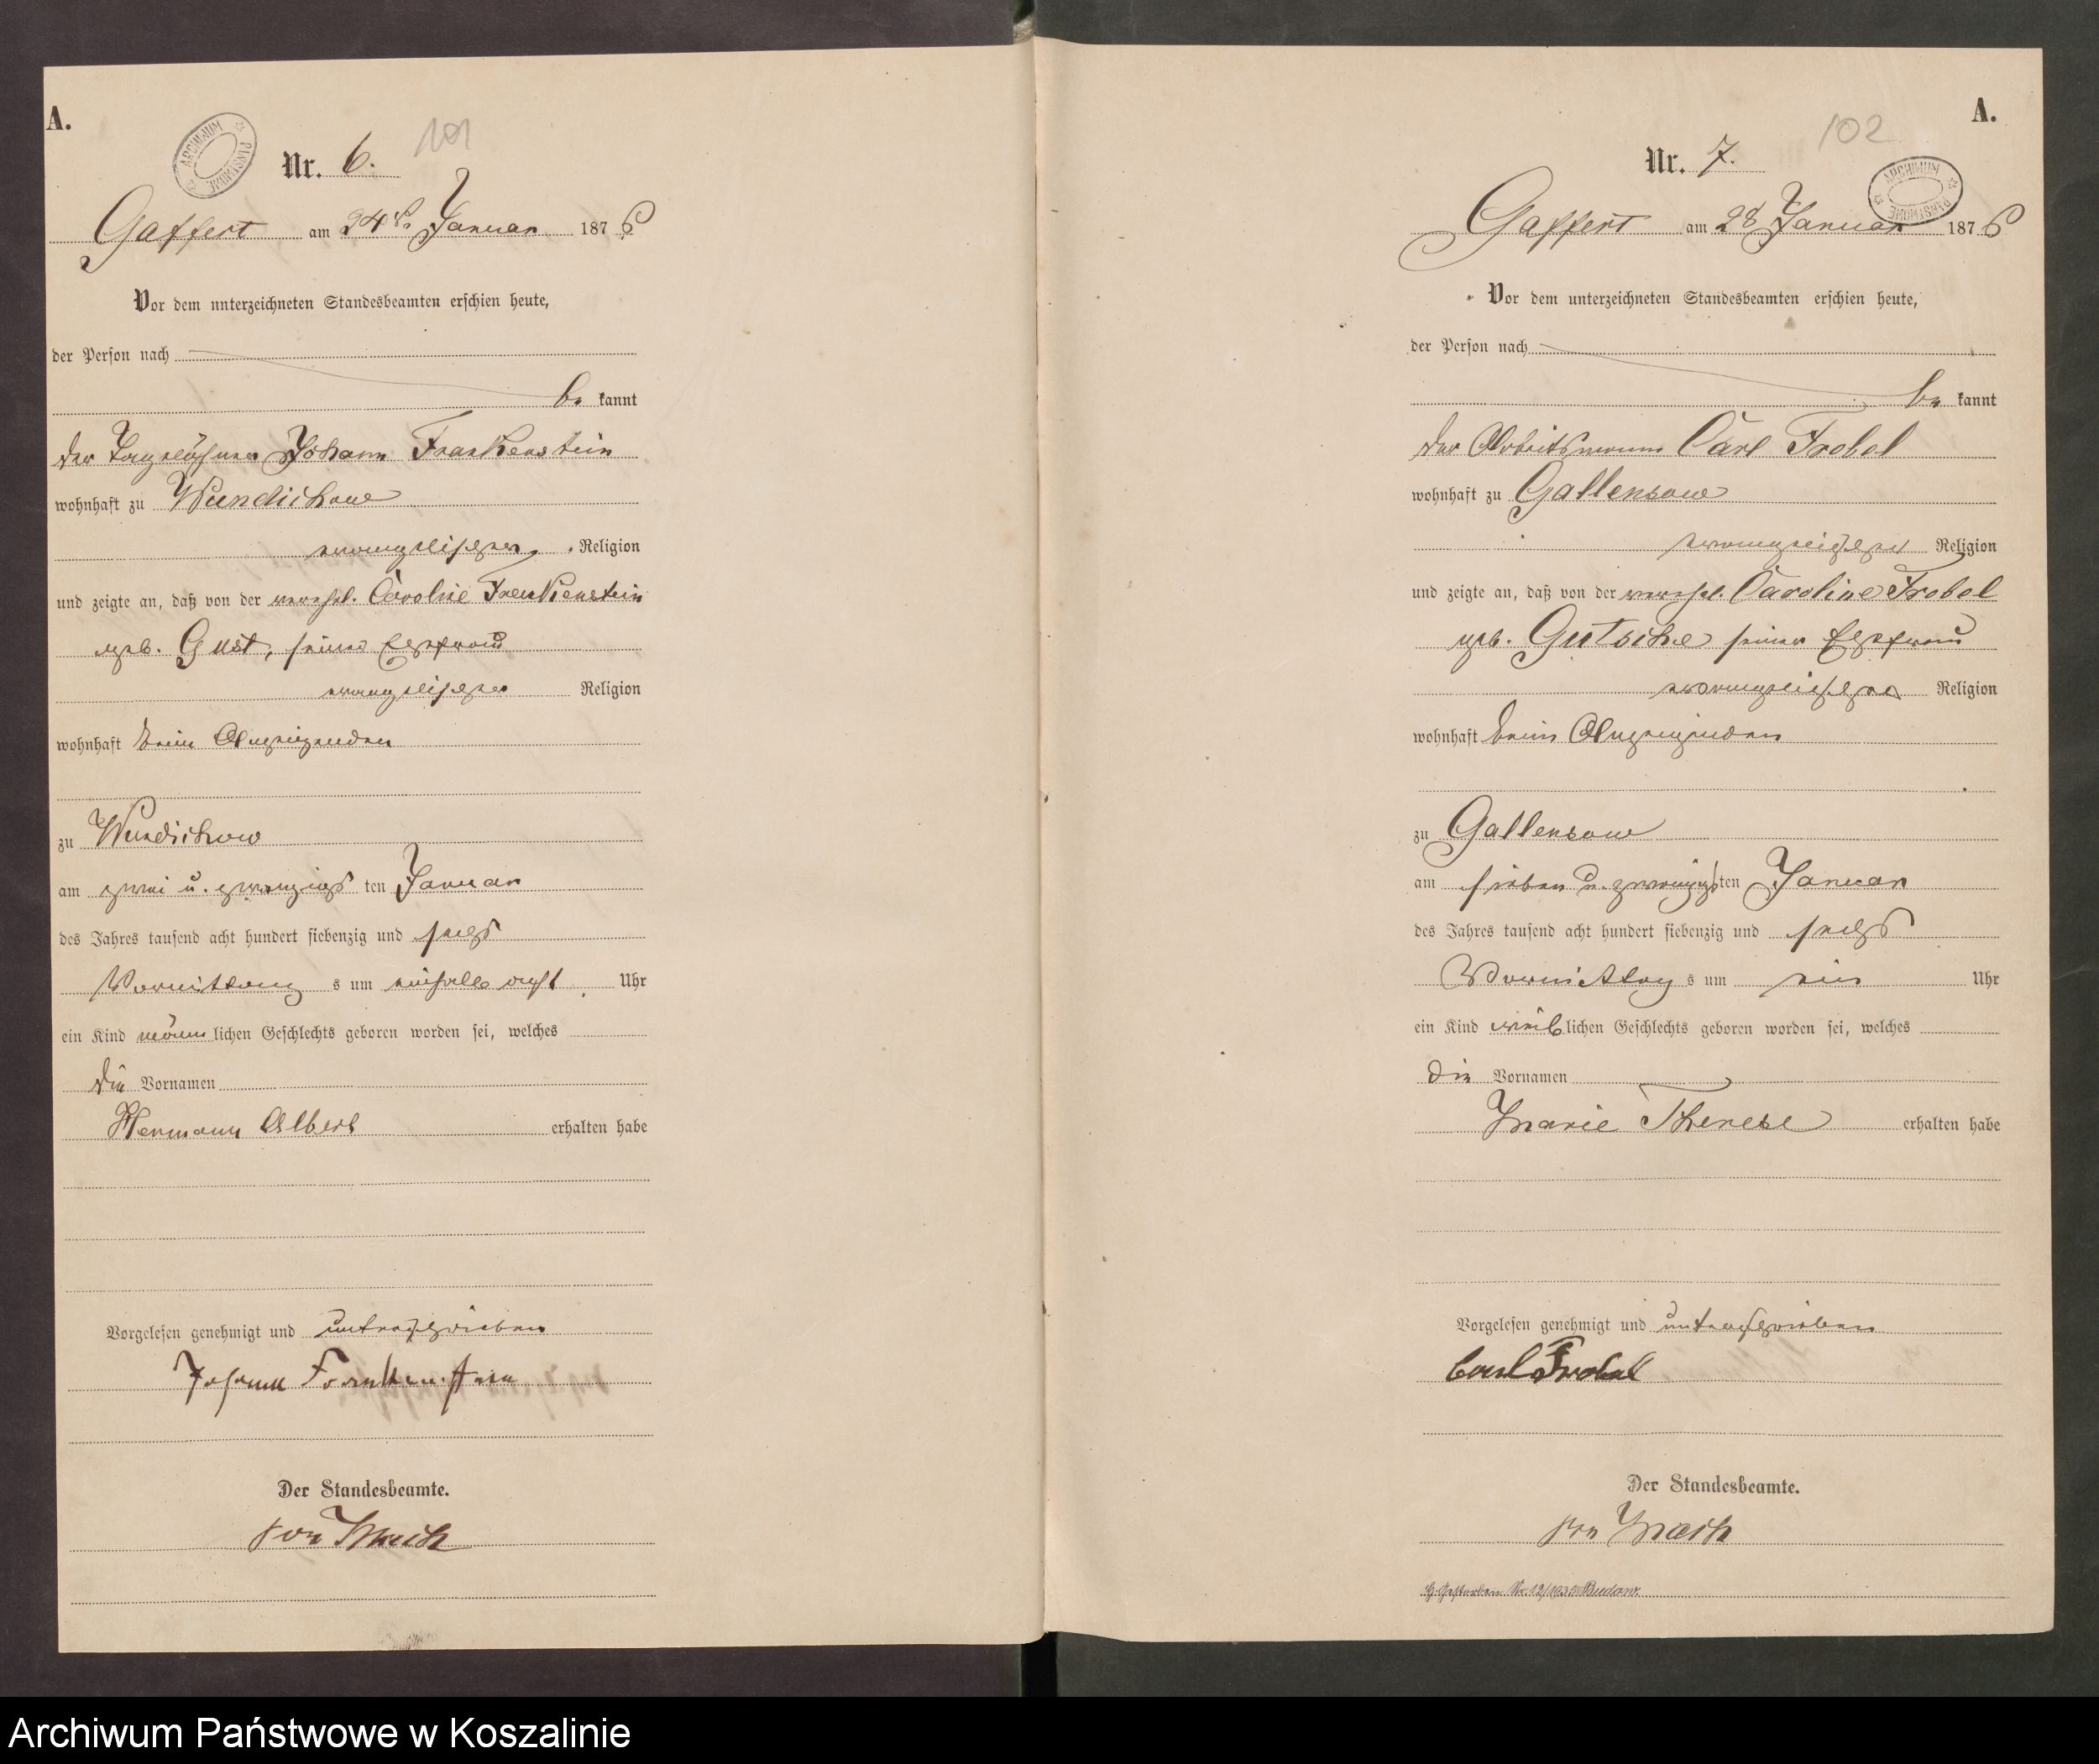 A.
ARCHIWUM PAŃSTWOWE
Nr. 6. 101
Gaffert am 24t. Januar 1876
Vor dem unterzeichneten Standesbeamten erschien heute,
der Person nach
be kannt
der Tagelöhner Johann Frankenstein
wohnhaft zu Wundichow
evangelischer Religion
und zeigte an, daß von der verehel. Caroline Frankenstein
geb. Gust, seiner Ehefrau
evangelischer Religion
wohnhaft beim Anzeigenden
zu Wundichow
am zwei u. zwanzigs ten Januar
des Jahres tausend acht hundert siebenzig und sechs
Vormittag s um acht Uhr
ein Kind männ lichen Geschlechts geboren worden sei, welches
die Vornamen
Hermann Albert erhalten habe
Vorgelesen genehmigt und unterschrieben
Johann Frankenstein
Der Standesbeamte.
von
A.
102
Nr. 7.
ARCHIWUM PAŃSTWOWE
Gaffert am 28 Januar 1876
Vor dem unterzeichneten Standesbeamten erschien heute,
der Person nach
be kannt
der Arbeitsmann Carl Frobel
wohnhaft zu Gallensow
evangelischer Religion
und zeigte an, daß von der verehel. Caroline Frobel
geb. Gutsche seiner Ehefrau
evangelischer Religion
wohnhaft beim Anzeigenden
zu Gallensow
am sieben u. zwanzigs ten Januar
des Jahres tausend acht hundert siebenzig und sechs
Vormittag s um ein Uhr
ein Kind weib lichen Geschlechts geboren worden sei, welches
die Vornamen
Marie Therese erhalten habe
Vorgelesen genehmigt und unterschrieben
Carl Frobel
Der Standesbeamte.
von
Gestorben Nr. 12/193 Budow.
Archiwum Państwowe w Koszalinie